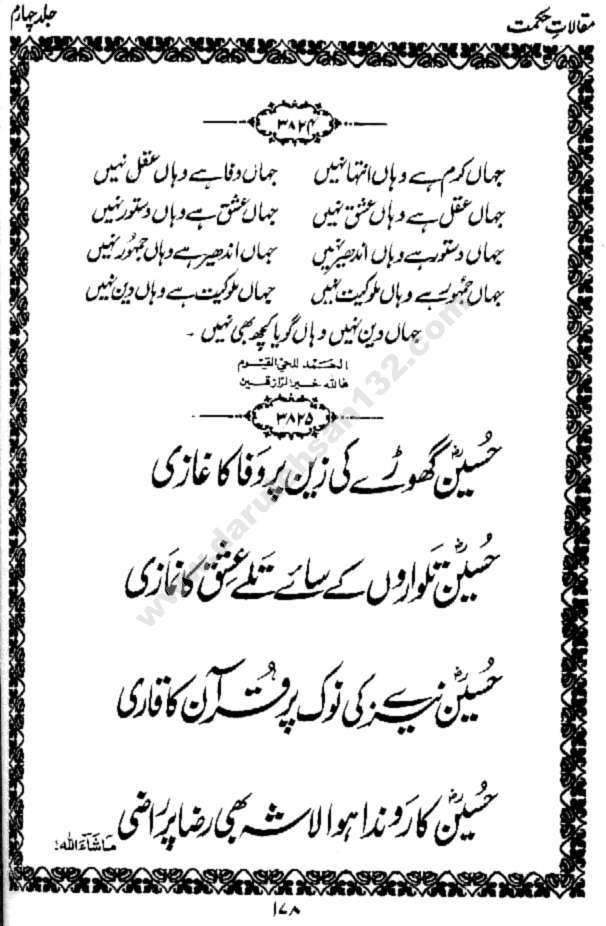 مقالاتِ حکمت
جلد چہارم
۳۸۲۴
جہاں کرم ہے وہاں انتہا نہیں جہاں وفا ہے وہاں عقل نہیں
جہاں عقل ہے وہاں عشق نہیں جہاں عشق ہے وہاں دستور نہیں
جہاں دستور ہے وہاں اندھیر نہیں جہاں اندھیر ہے وہاں جمہُور نہیں
جہاں جمہُور ہے وہاں ملوکیت نہیں جہاں ملوکیت ہے وہاں دین نہیں
جہاں دین نہیں وہاں گویا کچھ بھی نہیں ۔
الحَمد للحیّ القیّوم
فالله خیر الرّازقین
۳۸۲۵
حُسینؓ گھوڑے کی زین پر وَفا کا غازی
حُسینؓ تلواروں کے سائے تلے عِشق کا نمَازی
حُسینؓ نیزے کی نوک پر قُرآن کا قاری
حُسینؓ کا روندا ہوا لاشہ بھی رضا پر رَاضی
مَاشَآءَ اللّٰه!
۱۷۸
www.darulehsan132.com